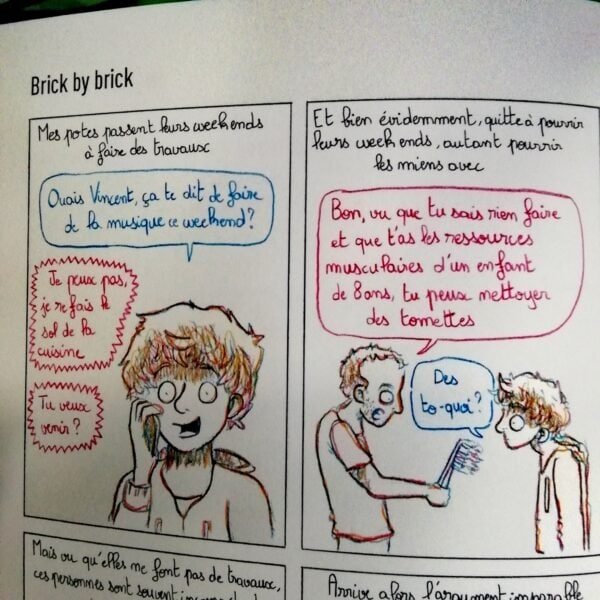 Brick by brick
Mes potes passent leurs weekends
à faire des travaux
Ouais Vincent, ça te dit de faire
de la musique ce weekend?
Je peux pas,
je refais le
sol de la
cuisine
Tu veux
venir ?
Et bien évidemment, quitte à pourrir
leurs weekends, autant pourrir
les miens avec
Bon, vu que tu sais rien faire
et que t'as les ressources
musculaires d'un enfant
de 8 ans, tu peux nettoyer
des tomettes
Des
to-quoi?
Mais vu qu'elles me font pas de travaux,
ces personnes sont souvent
Arrive alors l'argument imparable